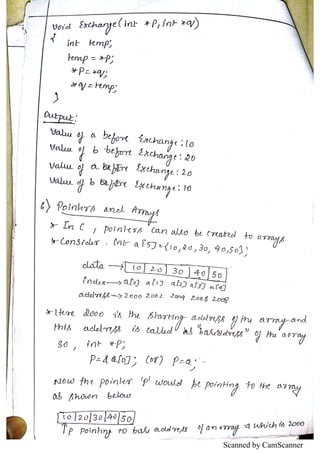 void Exchange(int *P, int *q)
{
int temp;
temp = *P;
*P = *q;
*q = temp;
}
Output:
Value of a before Exchange: 10
Value of b before Exchange: 20
Value of a Exchange: 20
Value of b Exchange: 10
6) Pointers and Arrays
* In C, pointers can also be created to arrays
* Consider. Int a[5]={10,20,30,40,50};
data → 10 20 30 40 50
index → a[0] a[1] a[2] a[3] a[4]
address → 2000 2002 2004 2006 2008
* Here 2000 is the starting address of the array and
this address is called as "base address" of the array
So, int *P;
P=&a[0]; (or) P=a;
Now the pointer 'p' would be pointing to the array
as shown below
10 20 30 40 50
↑P pointing to base address of an array a which is 2000
Scanned by CamScanner